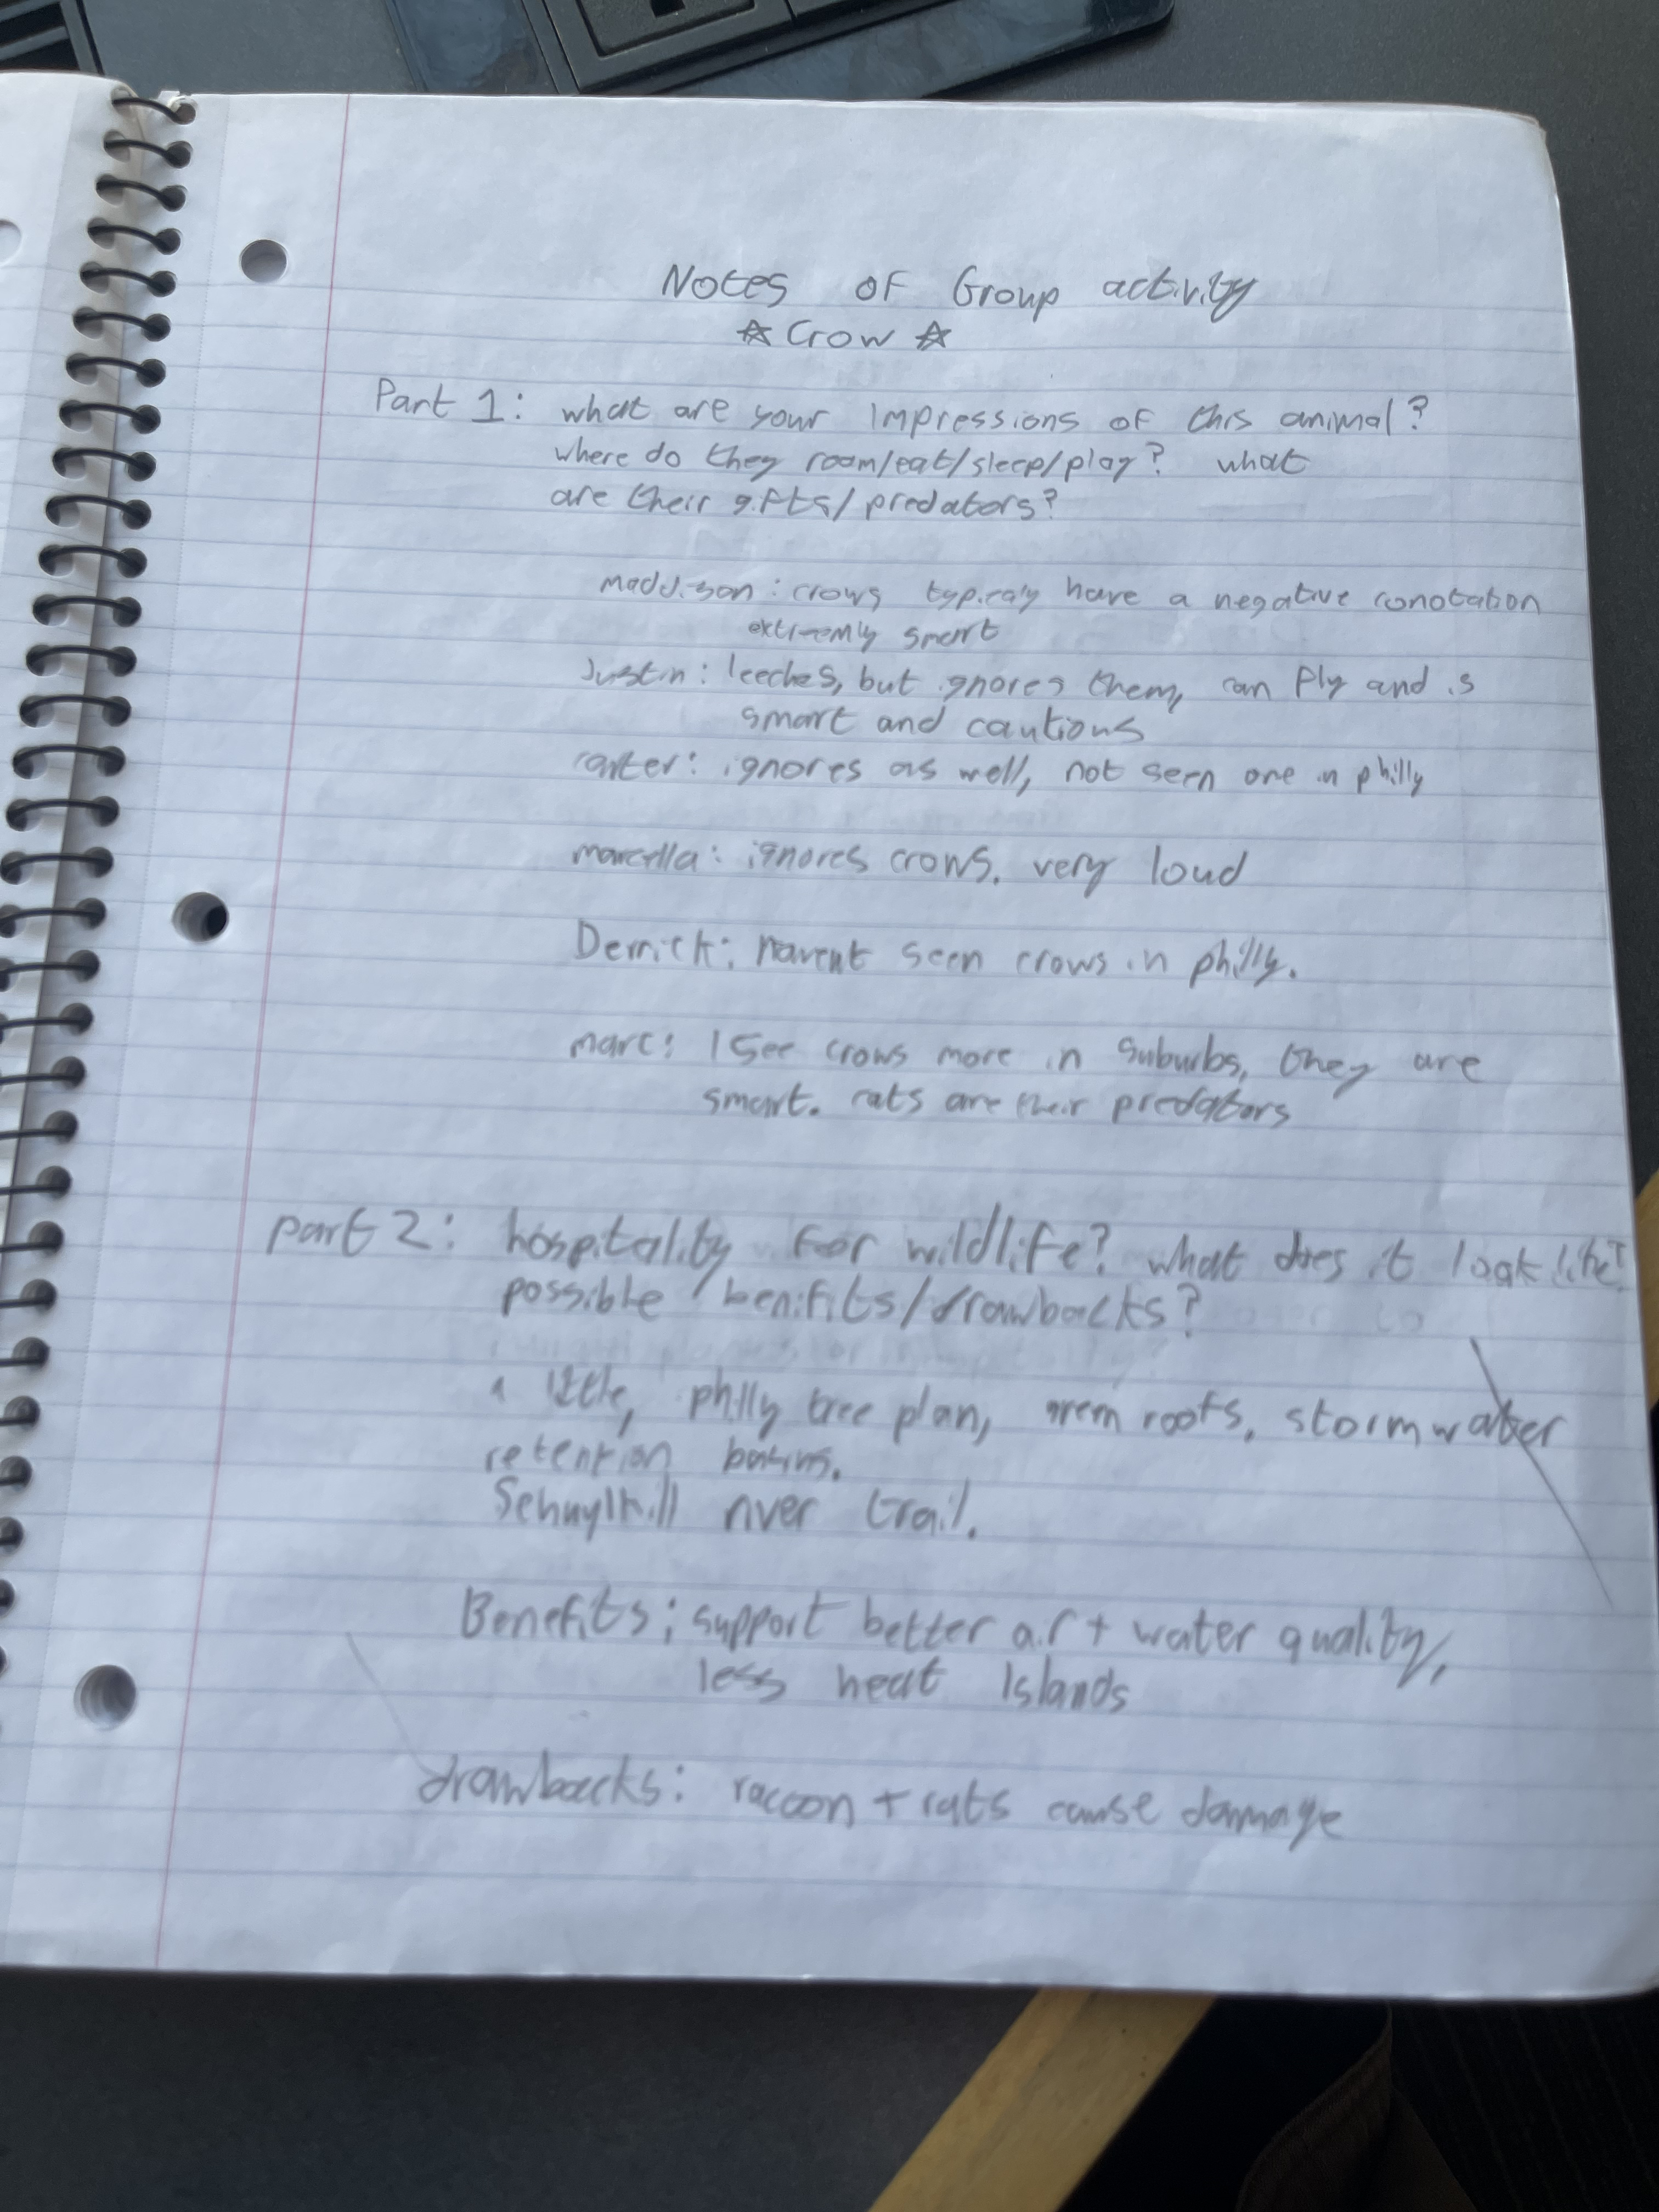 Notes of Group activity
☆ Crow ☆
Part 1: what are your impressions of this animal?
where do they room/eat/sleep/play? what
are their gifts/predators?
maddison: crows typicaly have a negative conotation
extremly smart
Justin: leeches, but ignores them, can fly and is
smart and cautious
carter: ignores as well, not seen one in philly
marcella: ignores crows. very loud
Derrick: havent seen crows in philly.
marc: I see crows more in suburbs, they are
smart. rats are their predators
part 2: hospitality for wildlife? what does it look like?
possible benifits/drawbacks?
a little, philly tree plan, green roofs, stormwater
retention basins.
Schuylkill river trail.
Benefits; support better air + water quality,
less heat Islands
drawbacks: racoon + rats cause damage